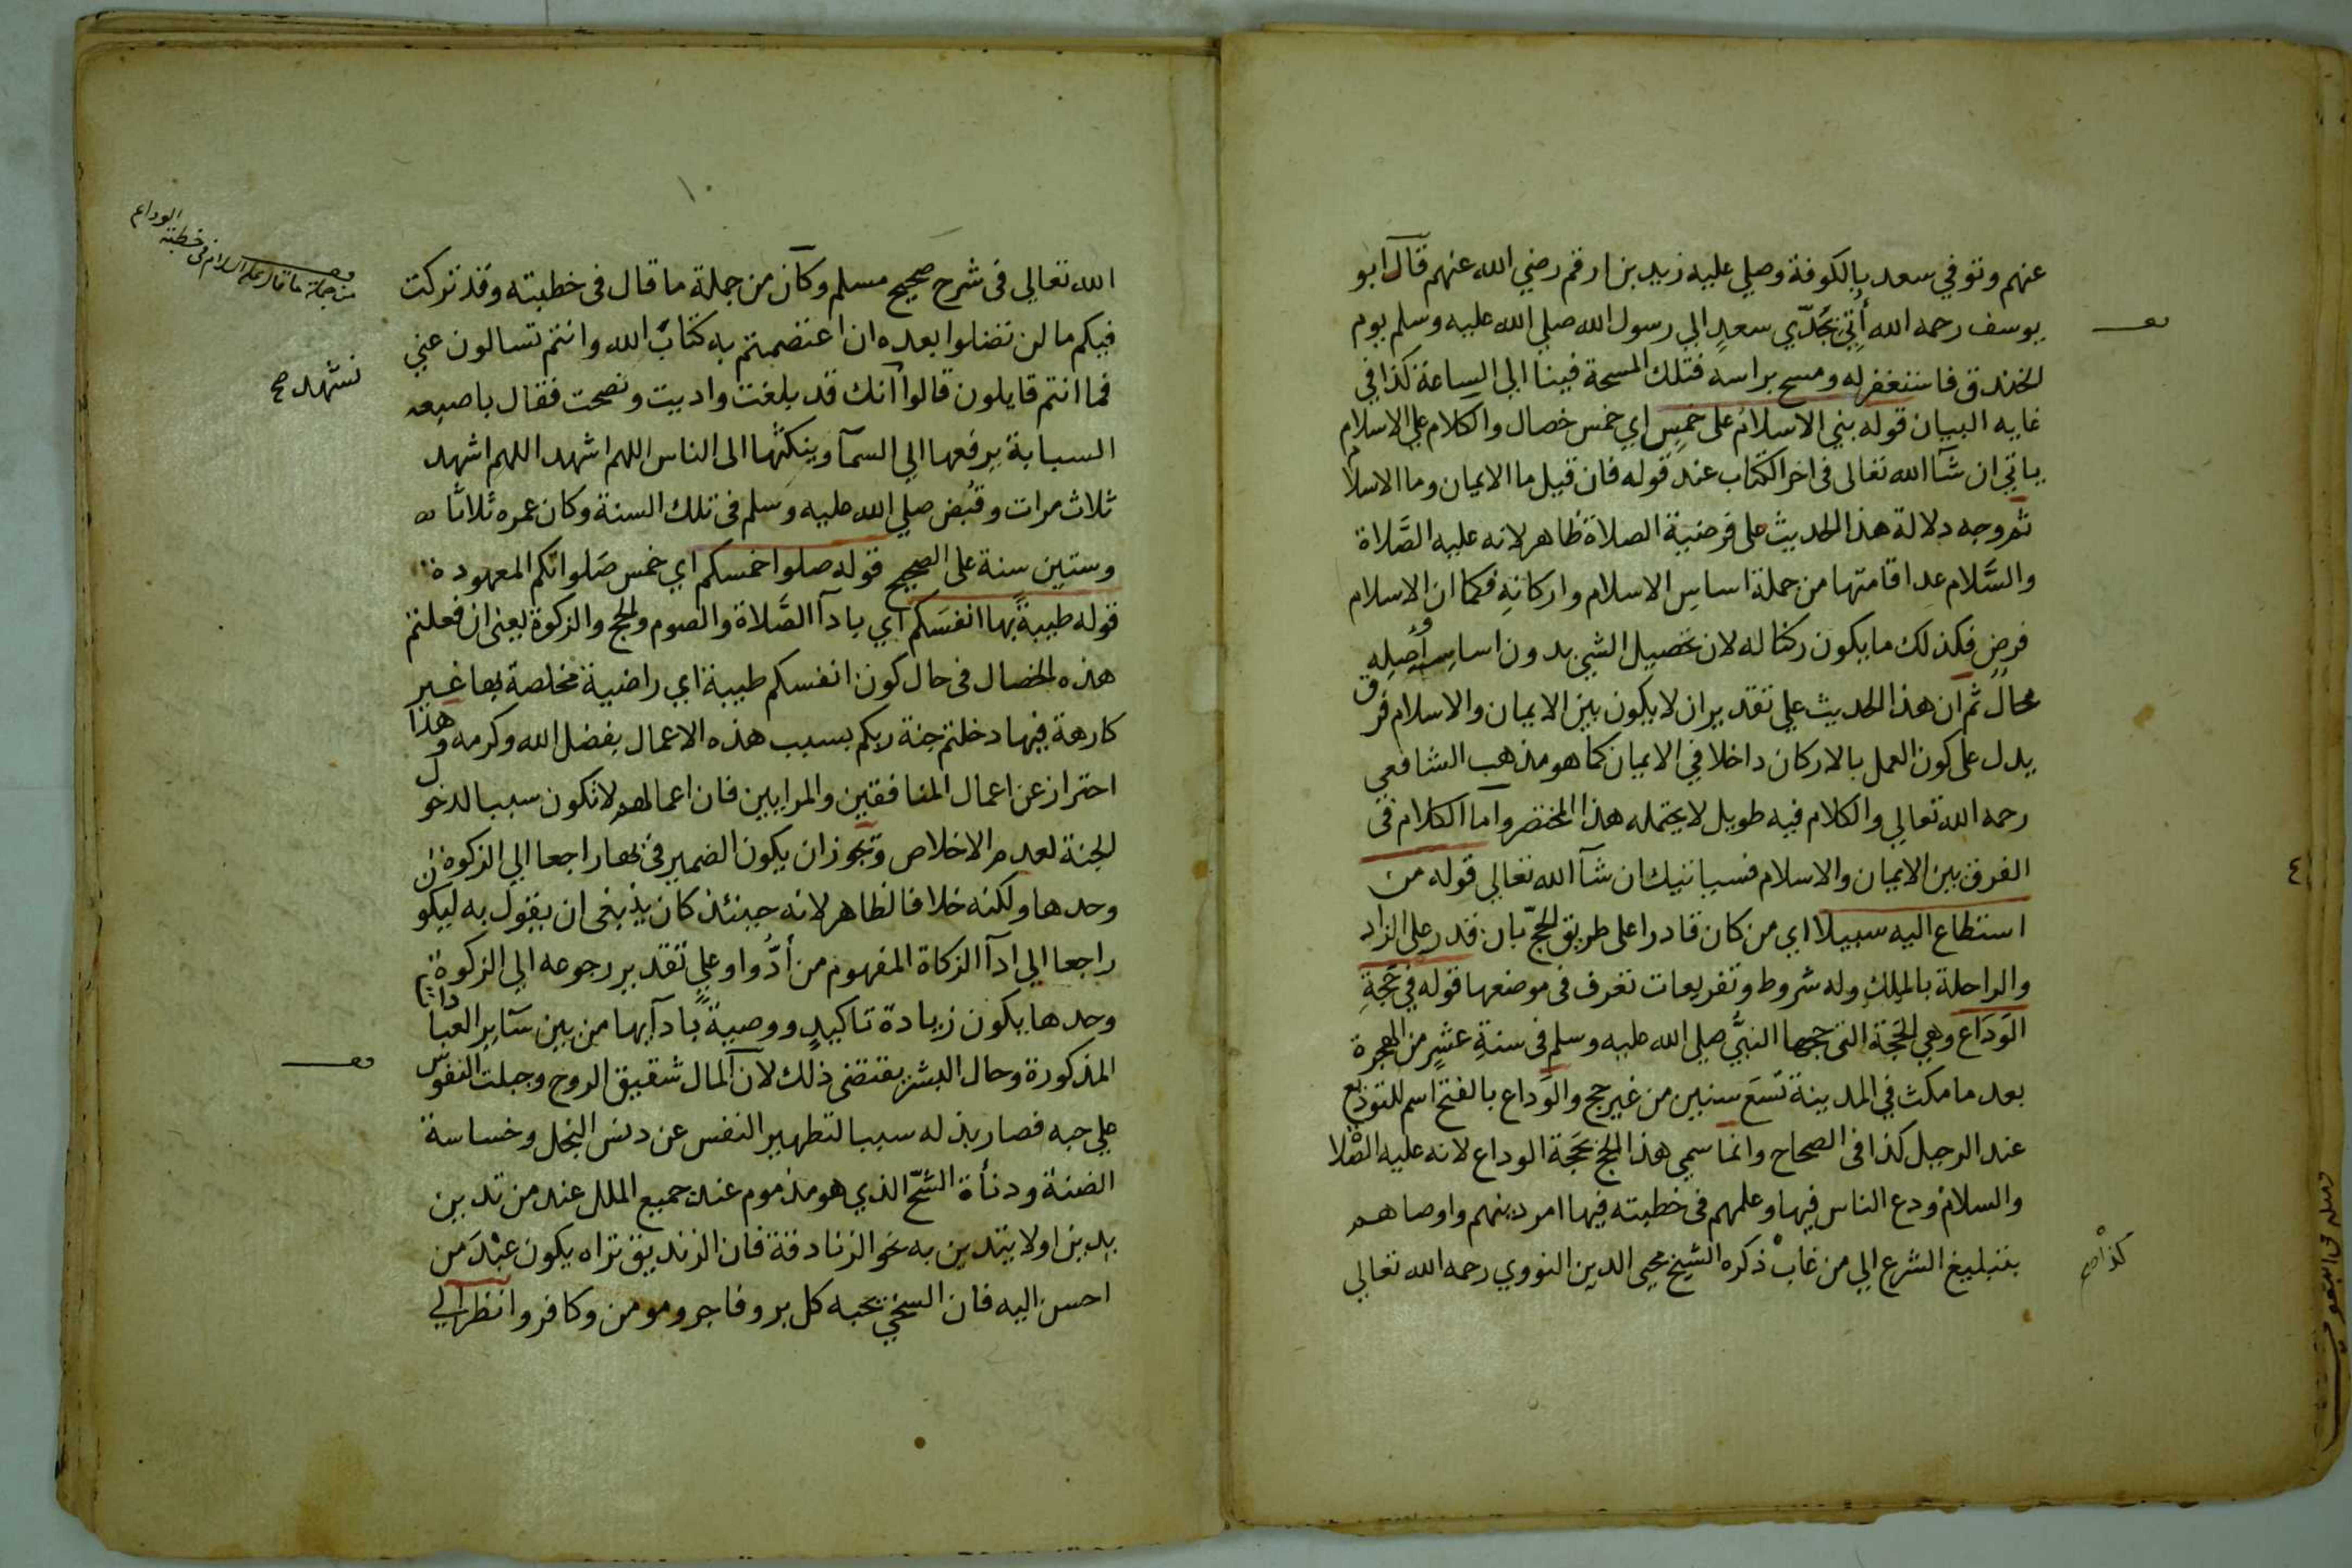 عنهم وتوفي سعد بالكوفة وصلي عليه زيد بن ارقم رضي الله عنهم قال ابو
يوسف رحمه الله أُتِيَ بجَدّي سعدٍ الي رسول الله صلي الله عليه وسلم يوم
الخندق فاستغفر له ومسح براسه فتلك المسحة فينا الي الساعة كذا في
غايه البيان قوله بني الاسلام على خمسٍ اي خمس خصال والكلام علي الاسلام
ياتي ان شآ الله تعالى فى اخر الكتاب عند قوله فان قيل ما الايمان وما الاسلام
ثم وجه دلالة هذا الحديث على فرضية الصلاة ظاهر لانه عليه الصَّلاة
والسَّلام عد اقامتها من جملة اساس الاسلام واركانهِ فكما ان الاسلام
فرض فكذلك ما يكون ركنا له لان تحصيل الشي بدون اساسِ أصلِه
محال ثم ان هذا الحديث علي تقدير ان لا يكون بين الايمان والاسلام فرق
يدل على كون العمل بالاركان داخلا في الايمان كما هو مذهب الشافعي
رحمه الله تعالي والكلام فيه طويل لا يحتمله هذا المختصر واما الكلام فى
الفرق بين الايمان والاسلام فسياتيك ان شآ الله تعالي قوله من
استطاع اليه سبيلا اي من كان قادرا على طريق الحجّ بان قدر على الزاد
والراحلة بالمِلكِ وله شروط وتفريعات تعرف فى موضعها قوله في حَجةِ
الوَدَاع وهي الحَجّة التى حجها النبيُّ صلى الله عليه وسلم فى سنةِ عشرٍ من الهجرة
بعد ما مكث في المدينة تسَعَ سنين من غير حج والوَداع بالفتح اسم للتوديع
عند الرحيل كذا فى الصحاح وانما سمي هذا الحج بحَجة الوداع لانه عليه الصّلاة
والسلام ودع الناس فيها وعلمهم فى خطبته فيها امر دينهم واوصاهم
بتبليغ الشرع الي من غاب ذكره الشيخ محيى الدين النووي رحمه الله تعالي
كذا صح
٤
١٠
الله تعالي فى شرح صحيح مسلم وكآن من جملة ما قال فى خطبته وقد تركت
فيكم ما لن تضلوا بعده ان اعتصمتم به كتابَ الله وانتم تسالون عني
فما انتم قايلون قالوا انك قد بلغت واديت ونصحت فقال باصبعه
السبابة يرفعها الي السمآ وينكتُها الى الناس اللهم اشهد اللهم اشهد
ثلاث مرات وقبُض صلي الله عليه وسلم فى تلك السنة وكان عمره ثلاثا
وستين سنة على الصحيح قوله صلوا خمسكم اي خمس صَلواتكم المعهودة
قوله طيبةً بها انفسَكم اي بادآ الصَّلاة والصوم والحج والزكوة يعنى ان فعلتم
هذه الخصال فى حال كون انفسكم طيبة اي راضية مخلصة بها غير
كارهة فيها دخلتم جنة ربكم بسبب هذه الاعمال بفضل الله وكرمه وهذا
احتراز عن اعمال المنافقين والمرايين فان اعمالهم لا تكون سببا لدخول
الجنة لعدم الاخلاص وتجوز ان يكون الضمير فى بها راجعا الي الزكوة
وحدها ولكنه خلاف الظاهر لانه حينئذ كان ينبغى ان يقول به ليكون
راجعا الي ادآ الزكاة المفهوم من أدُّوا وعلي تقدير رجوعه الي الزكوة
وحدها يكون زيادة تاكيدٍ ووصيةً بادآيها من بين سآير العبادات
المذكورة وحال البشر يقتضى ذلك لان المال شقيق الروح وجبلت النفوس
علي حبه فصار بذله سببا لتطهير النفس عن دنس البخل وخساسة
الضنة ودنأة الشحّ الذي هو مذموم عند جميع الملل عند من تدين
بدين اولا يتدين به نحو الزنادقة فان الزنديق تراه يكون عبْدَ من
احسن اليه فان السخي تحبه كل بر وفاجر ومومن وكافر وانظر الي
من جملة ما قال عليه السلام في خطبته الوداع
نشهد صح